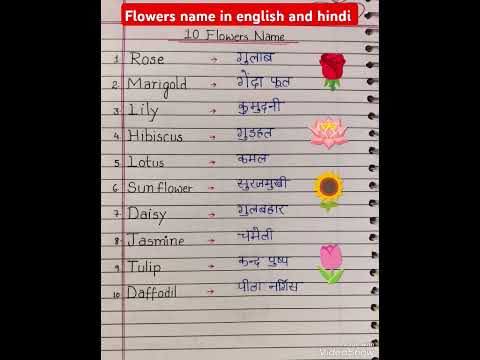 Flowers name in english and hindi
10 Flowers Name
1. Rose → गुलाब
2. Marigold → गेंदा फूल
3. Lily → कुमुदनी
4. Hibiscus → गुडहल
5. Lotus → कमल
6. Sunflower → सुरजमुखी
7. Daisy → गुलबहार
8. Jasmine → चमेली
9. Tulip → कन्द पुष्प
10. Daffodil → पीला नर्गिस
VideoShow